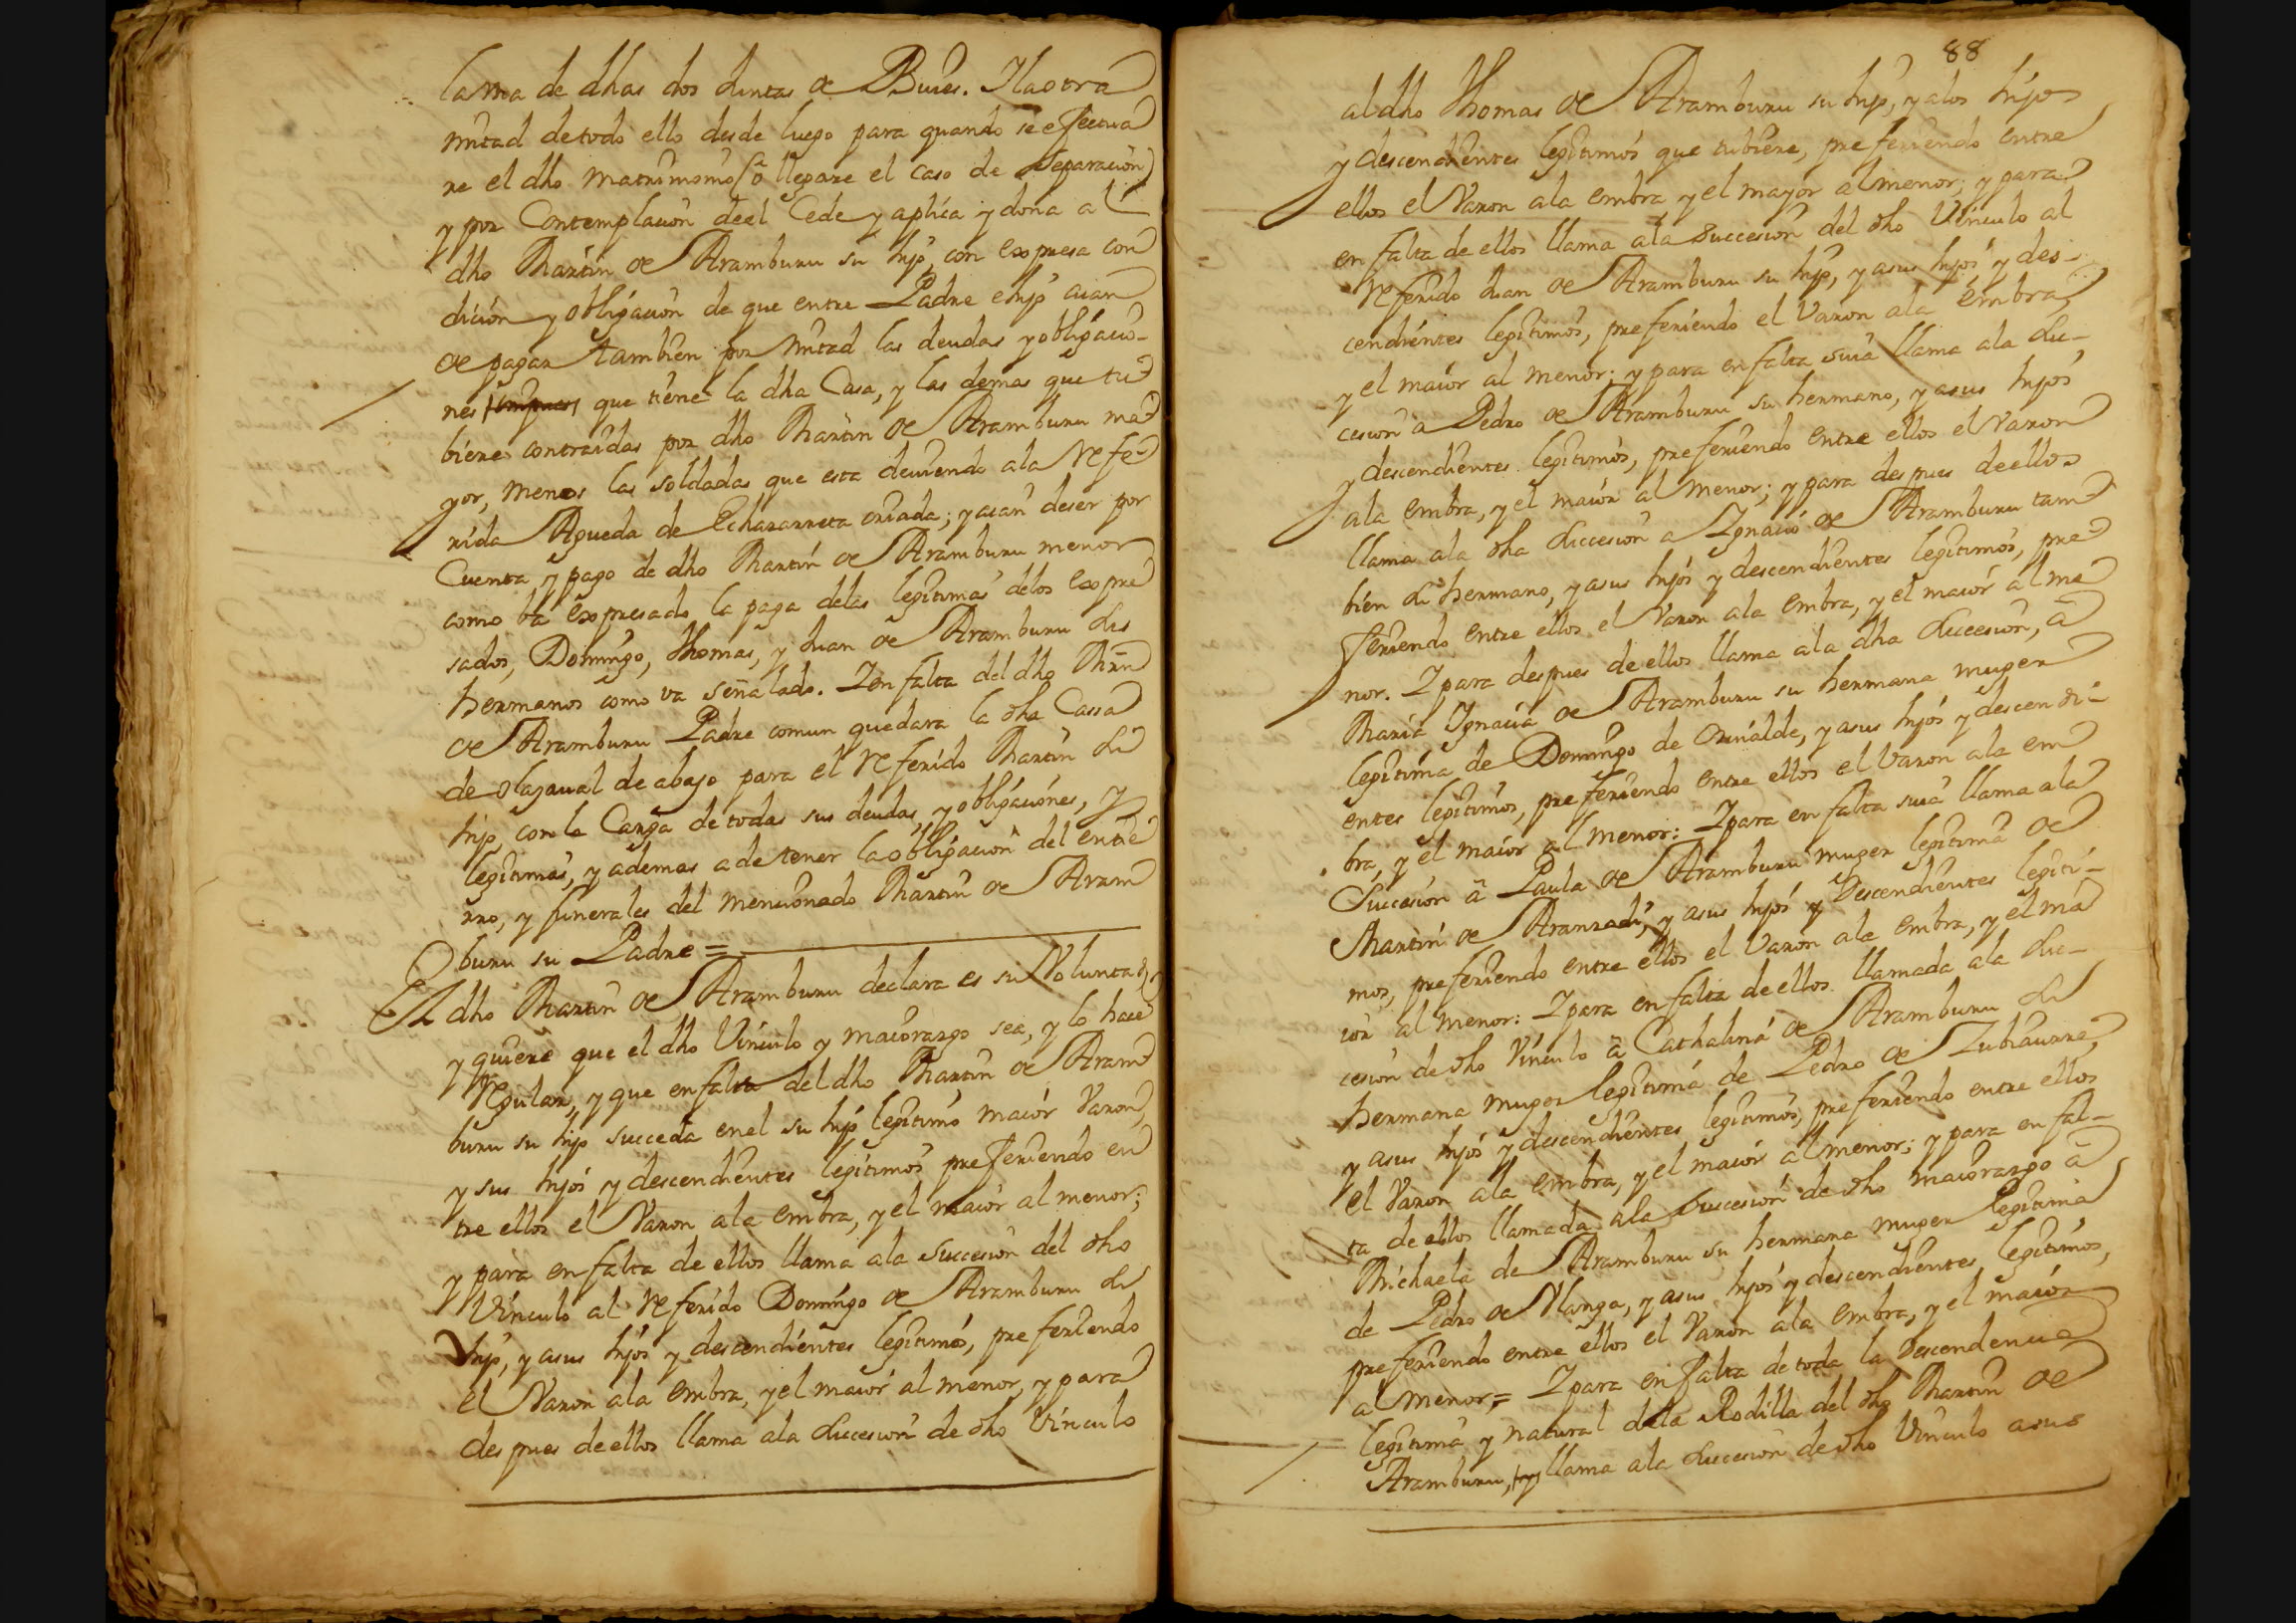 la ma de dhas dos Juntas de Bueies. Y la otra
mitad de todo ello desde luego para quando se efectua
re el dho matrimonio (ô llegare el caso de Separacion)
y por Contemplacion de el Cede y aplica y dona al
dho Martin de Aramburu su hijo, con expresa con
dicion y obligacion de que entre Padre e hijo aian
de pagar tambien por mitad las deudas y obligacio-
nes que tiene la dha Casa, y las demas que tu
biere contraidas por dho Martin de Aramburu ma
yor, menos las soldadas que esta deviendo ala refe
rida Agueda de Echazarreta criada; y acan deser por
Cuenta y pago de dho Martin de Aramburu menor
como ba expresado la paga delas legitimas delos expre
sados, Domingo, Thomas, y Juan de Aramburu sus
hermanos como va señalado. Y en falta del dho Mrn
de Aramburu Padre comun quedara la dha Cassa
de olazaual de abajo para el referido Martin su
hijo, con la Carga de todas sus deudas, y obligaciones, y
legitimas, y ademas a de tener la obligacion del entie
rro, y funerales del mencionado Martin de Aram
buru su Padre =
El dho Martin de Aramburu declara es su Voluntad
y quiere que el dho Vinculo y maiorazgo sea, y lo hace
Regular, y que en falta del dho Martin de Aram
buru su hijo succeda enel su hijo legitimo maior Varon,
y sus hijos y descendientes legitimos prefiriendo en
tre ellos el Varon ala embra, y el maior al menor;
y para en falta de ellos llama ala succesion del dho
Vinculo al referido Domingo de Aramburu su
hijo, y asus hijos y descendientes legitimos, prefiriendo
el Varon ala embra, y el maior al menor, y para
despues deellos llama ala succesion de dho Vinculo
88
al dho Thomas de Aramburu su hijo, y alos hijos
y descendientes legitimos que tubiere, prefiriendo entre
ellos el Varon ala embra y el mayor al menor; y para
en falta de ellos llama ala Succesion del dho Vinculo al
referido Juan de Aramburu su hijo, y asus hijos y des-
cendientes legitimos, prefiriendo el Varon ala embra,
y el maior al menor; y para en falta suia llama ala su-
cesion a Pedro de Aramburu su hermano, y asus hijos
y descendientes legitimos, prefiriendo entre ellos el Varon
ala embra, y el maior al menor; y para despues deellos
llama ala dha succesion a Ygnacio de Aramburu tam
bien su hermano, y asus hijos y descendientes legitimos, pre
firiendo entre ellos el Varon ala embra, y el maior al me
nor. Y para despues deellos llama ala dha succesion, â
Maria Ygnacia de Aramburu su hermana muger
legitima de Domingo de Orualde, y asus hijos y descendi-
entes legitimos, prefiriendo entre ellos el Varon ala em
bra, y el maior al menor: Y para en falta suia llama ala
Succesion â Paula de Aramburu muger legitima de
Martin de Aranzadi, y asus hijos y descendientes legiti-
mos, prefiriendo entre ellos el Varon ala embra, y el ma
ior al menor: Y para en falta deellos llamada ala su-
cesion de dho Vinculo â Cathalina de Aramburu su
hermana muger legitima de Pedro de Zubiaurre,
y asus hijos y descendientes legitimos, prefiriendo entre ellos
el Varon ala embra, y el maior al menor; y para en fal-
ta de ellos llamada ala Succesion de dho maiorazgo â
Michaela de Aramburu su hermana muger legitima
de Pedro de Ulanga, y asus hijos y descendientes legitimos,
prefiriendo entre ellos el Varon ala embra, y el maior
al menor = Y para en falta de toda la descendencia
legitima y natural dela Rodilla del dho Martin de
Aramburu, llama ala succesion de dho Vinculo asus